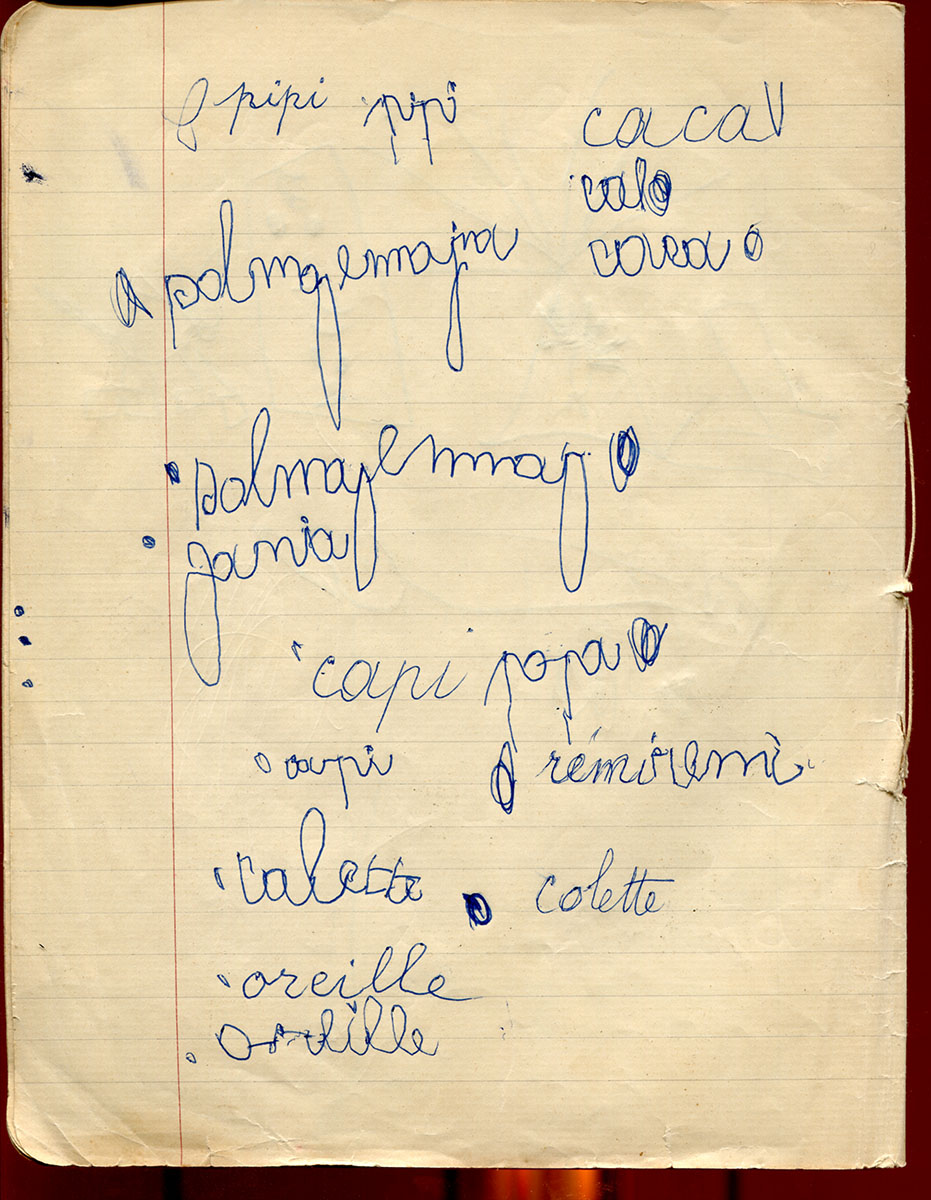 pipi pipi cacal
calo
caca o
polmajemajra
polmajemmaj
jania
capi papa
capi rémi rémi
calette colette
oreille
oreille